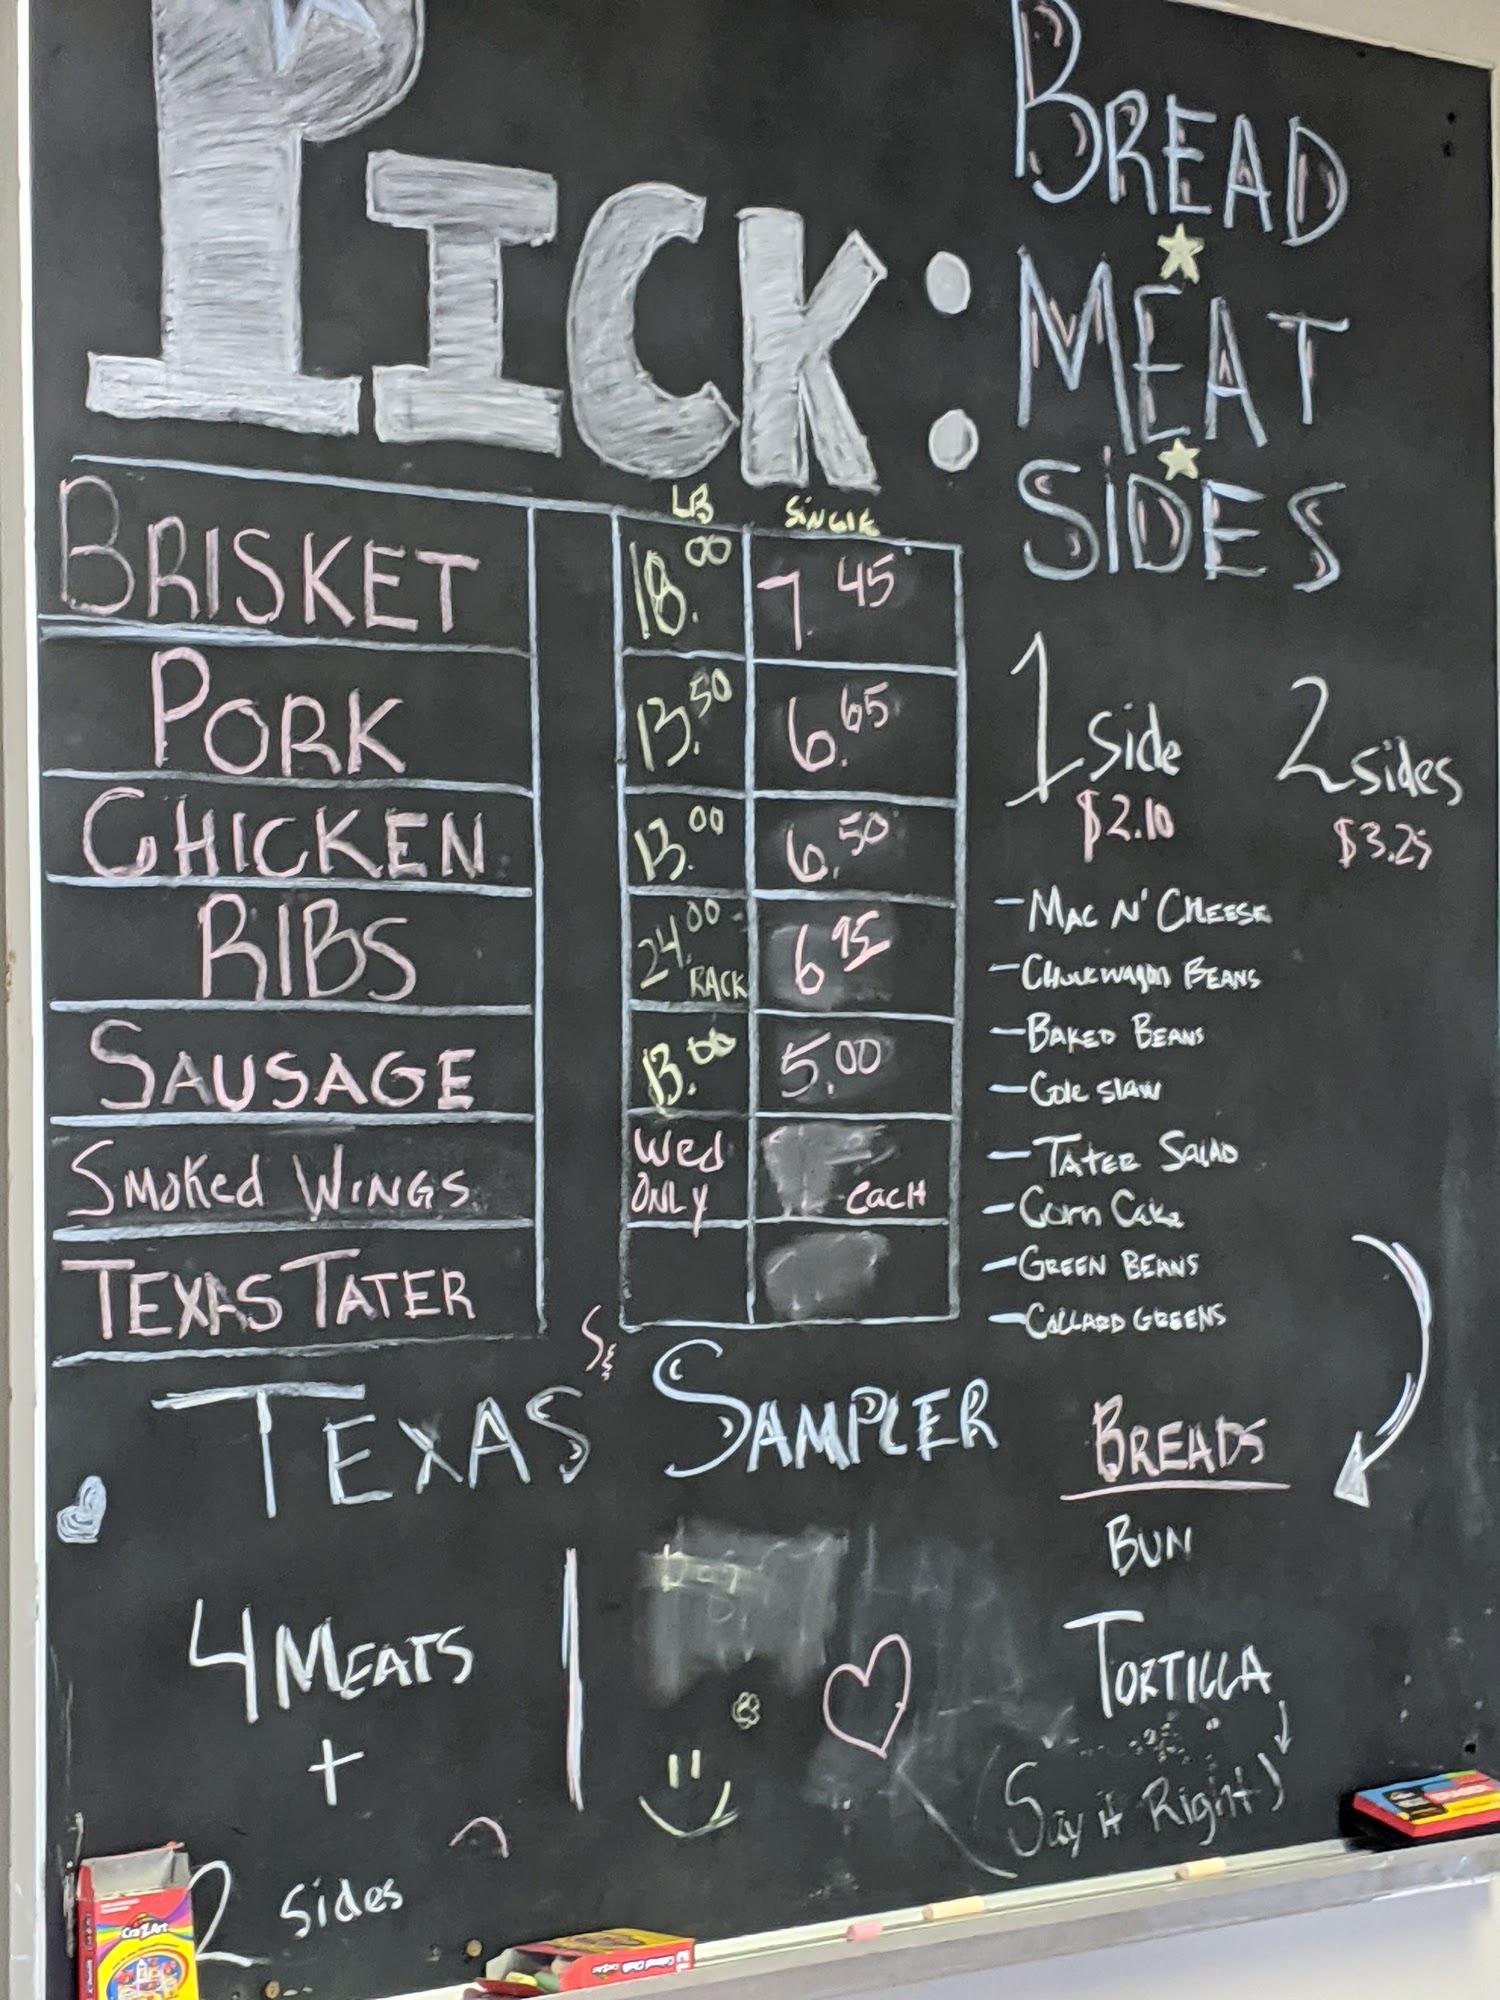 PICK:
BREAD
MEAT
SIDES
LB SINGLE
BRISKET 18.00 7 45
PORK 13.50 6.65
CHICKEN 13.00 6.50
RIBS 24.00 RACK 6 95
SAUSAGE 13.00 5.00
SMOKED WINGS Wed ONLY each
TEXAS TATER
1 side
$2.10
2 sides
$3.25
- MAC N' CHEESE
- CHUCKWAGON BEANS
- BAKED BEANS
- Cole slaw
- TATER SALAD
- Corn Cake
- GREEN BEANS
- COLLARD GREENS
TEXAS SAMPLER
4 MEATS
+
2 sides
BREADS
BUN
TORTILLA
(Say it Right)
Cra-Z-Art
Colored Chalk